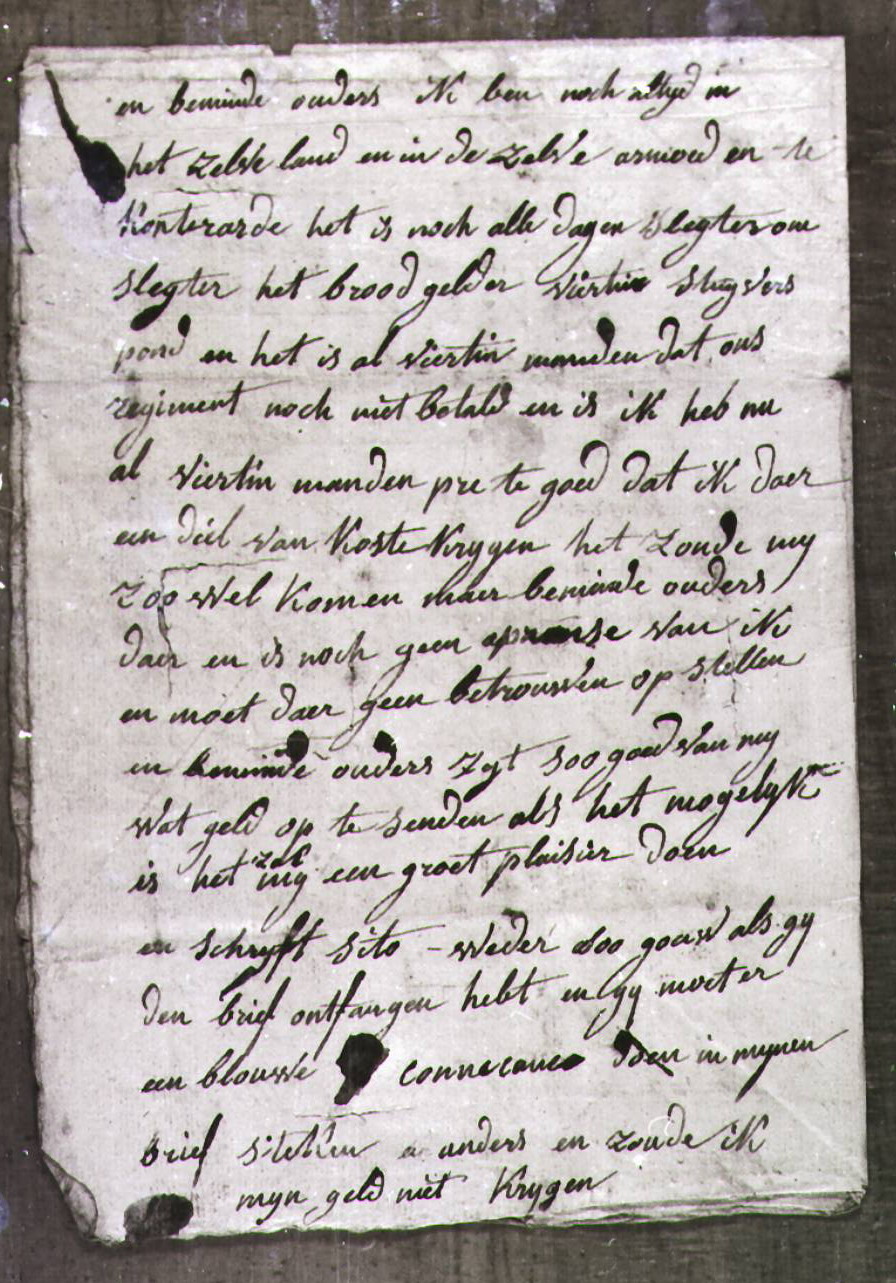 en beminde ouders ik ben noch altyd in
het zelve land en in de zelve armoed en te
konterarde het is noch alle dagen slegter om
slegter het brood gelder viertin stuyvers
pond en het is al viertin manden dat ons
regiment noch niet betald en is ik heb nu
al viertin manden pre te goed dat ik daer
een deel van koste krygen het zoude my
zoo wel komen maer beminde ouders
daer en is noch geen van ik
en moet daer geen betrouwen op stellen
en beminde ouders zyt soo goed van my
wat geld op te senden als het mogelyk
is het zal my een groet plaisier doen
en schryft sito weder soo gouw als gy
den brief ontfangen hebt en gy moet er
een blouwe connecance doen in mynen
brief steken anders en zoude ik
myn geld niet krygen